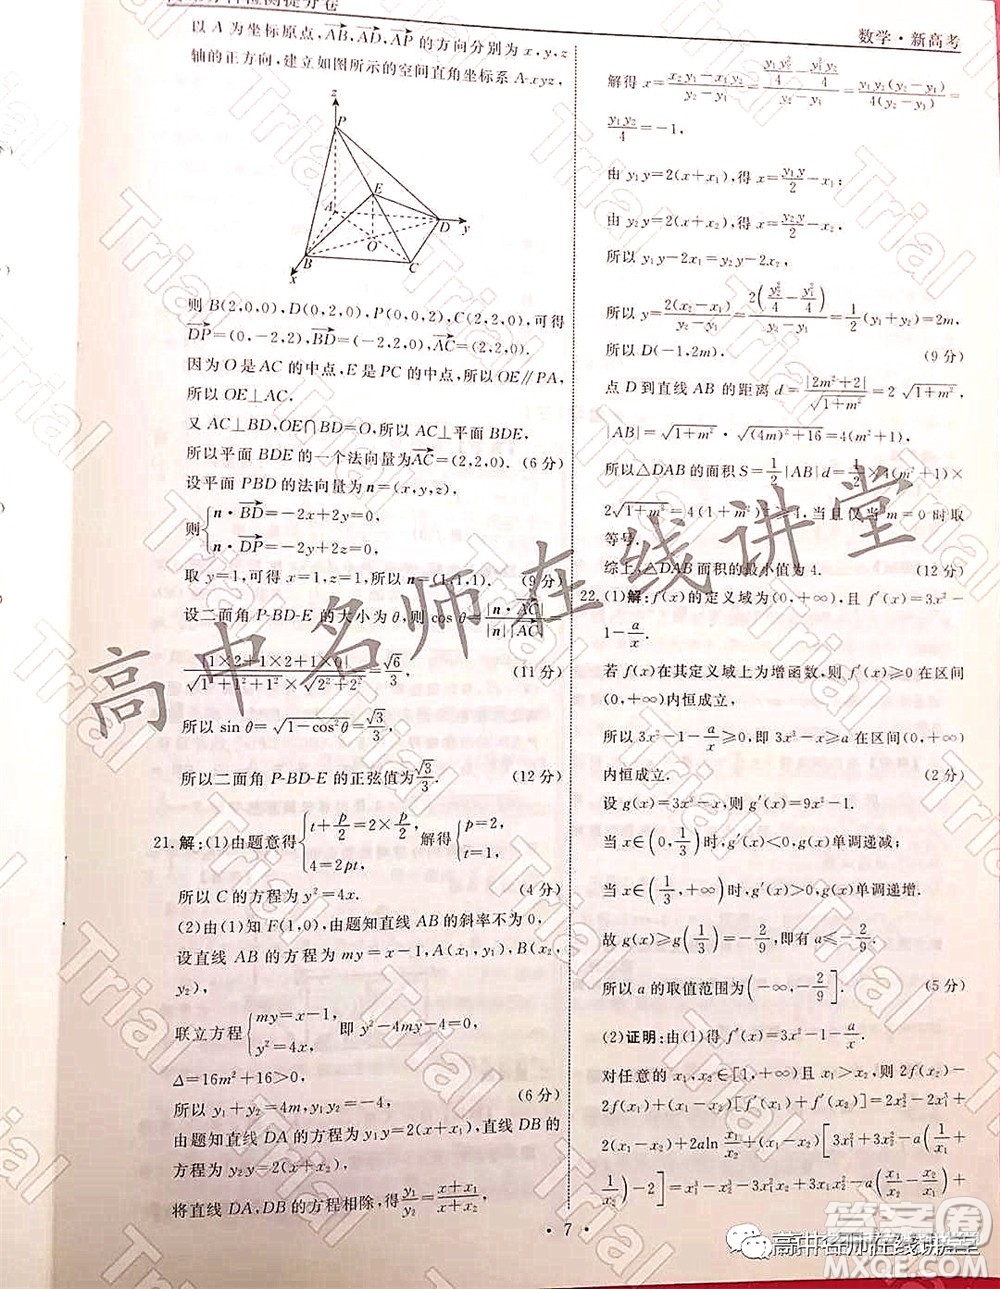 数学·新高考
以 A 为坐标原点, AB, AD, AP 的方向分别为 x, y, z
轴的正方向,建立如图所示的空间直角坐标系 A-xyz,
z
P
E
A
D
y
O
B
C
x
则 B(2,0,0),D(0,2,0),P(0,0,2),C(2,2,0),可得
DP=(0,-2,2),BD=(-2,2,0),AC=(2,2,0).
因为 O 是 AC 的中点,E 是 PC 的中点,所以 OE∥PA,
所以 OE⊥AC.
又 AC⊥BD,OE∩BD=O,所以 AC⊥平面 BDE,
所以平面 BDE 的一个法向量为 AC=(2,2,0). (6 分)
设平面 PBD 的法向量为 n=(x,y,z),
则 { n·BD=-2x+2y=0,
n·DP=-2y+2z=0,
取 y=1,可得 n=(1,1,1). (9 分)
设二面角 P-BD-E 的大小为 θ,则 cos θ=|n·AC|/|n||AC|
|1×2+1×2+1×0|/(√(1²+1²+1²)×√(2²+2²+0²))=√6/3, (11 分)
所以 sin θ=√(1-cos²θ)=√3/3,
所以二面角 P-BD-E 的正弦值为 √3/3. (12 分)
21.解:(1)由题意得 { t+p/2=2×p/2, 4=2pt, 解得 { p=2, t=1,
所以 C 的方程为 y²=4x. (4 分)
(2)由(1)知 F(1,0),由题知直线 AB 的斜率不为 0,
设直线 AB 的方程为 my=x-1,A(x₁,y₁),B(x₂,
y₂),
联立方程 { my=x-1, y²=4x, 即 y²-4my-4=0,
Δ=16m²+16>0,
所以 y₁+y₂=4m,y₁y₂=-4, (6 分)
由题知直线 DA 的方程为 y₁y=2(x+x₁),直线 DB 的
方程为 y₂y=2(x+x₂),
将直线 DA,DB 的方程相除,得 y₁/y₂=(x+x₁)/(x+x₂),
解得 x=(x₂y₁-x₁y₂)/(y₂-y₁)=(y₁y₂²/4-y₂y₁²/4)/(y₂-y₁)=y₁y₂(y₂-y₁)/4(y₂-y₁)=
y₁y₂/4=-1,
由 y₁y=2(x+x₁),得 x=y₁y/2-x₁;
由 y₂y=2(x+x₂),得 x=y₂y/2-x₂,
所以 y₁y-2x₁=y₂y-2x₂,
所以 y=2(x₂-x₁)/(y₂-y₁)=2(y₂²/4-y₁²/4)/(y₂-y₁)=1/2(y₁+y₂)=2m,
所以 D(-1,2m). (9 分)
点 D 到直线 AB 的距离 d=|2m²+2|/√(1+m²)=2√(1+m²),
|AB|=√(1+m²)·√((4m)²+16)=4(1+m²),
所以△DAB 的面积 S=1/2|AB|d=1/2×4(1+m²)×
2√(1+m²)=4(1+m²)√(1+m²)≥4,当且仅当 m=0 时取
等号.
综上,△DAB 面积的最小值为 4. (12 分)
22.(1)解:f(x)的定义域为(0,+∞),且 f′(x)=3x²-
1-a/x.
若 f(x)在其定义域上为增函数,则 f′(x)≥0 在区间
(0,+∞)内恒成立,
所以 3x²-1-a/x≥0,即 3x³-x≥a 在区间(0,+∞)
内恒成立. (2 分)
设 g(x)=3x³-x,则 g′(x)=9x²-1,
当 x∈(0,1/3)时,g′(x)<0,g(x)单调递减;
当 x∈(1/3,+∞)时,g′(x)>0,g(x)单调递增.
故 g(x)≥g(1/3)=-2/9,即有 a≤-2/9,
所以 a 的取值范围为(-∞,-2/9]. (5 分)
(2)证明:由(1)得 f′(x)=3x²-1-a/x.
对任意的 x₁,x₂∈[1,+∞),且 x₁<x₂,则 2f(x₂)-
2f(x₁)+(x₁-x₂)[f′(x₁)+f′(x₂)]=2x₂³-2x₁³+
2(x₁-x₂)+2aln x₁/x₂+(x₁-x₂)[3x₁²+3x₂²-a(1/x₁+
1/x₂)-2]=x₁³-x₂³-3x₁²x₂+3x₁x₂²+a(x₁/x₂-x₂/x₁)-
·7·
高中名师在线讲堂
Trial
高中名师在线讲堂
答案卷
MXQE.COM